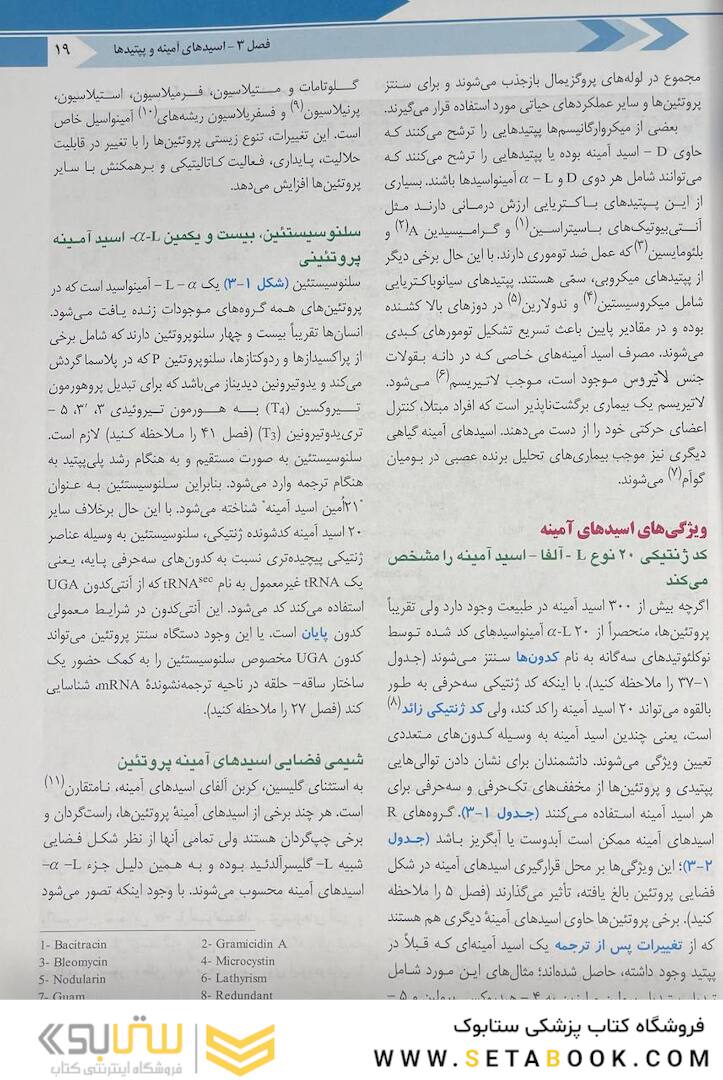 فصل ۳ - اسیدهای آمینه و پپتیدها
۱۹
مجموع در لوله‌های پروگزیمال بازجذب می‌شوند و برای سنتز
پروتئن‌ها و سایر عملکردهای حیاتی مورد استفاده قرار می‌گیرند.
بعضی از میکروارگانیسم‌ها پپتیدهایی را ترشح می‌کنند که
حاوی D - اسید آمینه بوده یا پپتیدهایی را ترشح می‌کنند که
می‌توانند شامل هر دوی D و α - L آمینواسیدها باشند. بسیاری
از این پپتیدهای باکتریایی ارزش درمانی دارند مثل
آنتی‌بیوتیک‌های باسیتراسین(۱) و گرامیسیدین A(۲) و
بلئومایسین(۳) که عمل ضد توموری دارند. با این حال برخی دیگر
از پپتیدهای میکروبی، سمّی هستند. پپتیدهای سیانوباکتریایی
شامل میکروسیستین(۴) و ندولارین(۵) در دوزهای بالا کشنده
بوده و در مقادیر پایین باعث تسریع تشکیل تومورهای کبدی
می‌شوند. مصرف اسید آمینه‌های خاصی که در دانه بقولات
جنس لاتیروس موجود است، موجب لاتیریسم(۶) می‌شود.
لاتیریسم یک بیماری برگشت‌ناپذیر است که افراد مبتلا، کنترل
اعضای حرکتی خود را از دست می‌دهند. اسیدهای آمینه گیاهی
دیگری نیز موجب بیماری‌های تحلیل برنده عصبی در بومیان
گوآم(۷) می‌شوند.
ویژگی‌های اسیدهای آمینه
کد ژنتیکی ۲۰ نوع L - آلفا - اسید آمینه را مشخص
می‌کند
اگرچه بیش از ۳۰۰ اسید آمینه در طبیعت وجود دارد ولی تقریباً
پروتئن‌ها، منحصراً از ۲۰ α-L آمینواسیدهای کد شده توسط
نوکلئوتیدهای سه‌گانه به نام کدون‌ها سنتز می‌شوند (جدول
۱-۳۷ را ملاحظه کنید). با اینکه کد ژنتیکی سه‌حرفی به طور
بالقوه می‌تواند ۲۰ اسید آمینه را کد کند، ولی کد ژنتیکی زائد(۸)
است، یعنی چندین اسید آمینه به وسیله کدون‌های متعددی
تعیین ویژگی می‌شوند. دانشمندان برای نشان دادن توالی‌هایی
پپتیدی و پروتئین‌ها از مخفف‌های تک‌حرفی و سه‌حرفی برای
هر اسید آمینه استفاده می‌کنند (جدول ۱-۳). گروه‌های R
اسیدهای آمینه ممکن است آبدوست یا آبگریز باشد (جدول
۲-۳)؛ این ویژگی‌ها بر محل قرارگیری اسیدهای آمینه در شکل
فضایی پروتئین بالغ یافته، تأثیر می‌گذارند (فصل ۵ را ملاحظه
کنید). برخی پروتئن‌ها حاوی اسیدهای آمینهٔ دیگری هم هستند
که از تغییرات پس از ترجمه یک اسید آمینه‌ای که قبلاً در
پپتید وجود داشته، حاصل شده‌اند؛ مثال‌های این مورد شامل
گلوتامات و متیلاسیون، فرمیلاسیون، استیلاسیون،
پرنیلاسیون(۹) و فسفریلاسیون ریشه‌های(۱۰) آمینواسیل خاص
است. این تغییرات، تنوع زیستی پروتئن‌ها را با تغییر در قابلیت
حلالیت، پایداری، فعالیت کاتالیتیکی و برهمکنش با سایر
پروتئن‌ها افزایش می‌دهد.
سلنوسیستئین، بیست و یکمین α-L- اسید آمینه
پروتئینی
سلنوسیستئین (شکل ۱-۳) یک L - α - آمینواسید است که در
پروتئین‌های همه گروه‌های موجودات زنده یافت می‌شود.
انسان‌ها تقریباً بیست و چهار سلنوپروتئن دارند که شامل برخی
از پراکسیدازها و ردوکتازها، سلنوپروتئن P که در پلاسما گردش
می‌کند و یدوتیرونین دیدیناز می‌باشد که برای تبدیل پروهورمون
تیروکسین (T4) به هورمون تیروئیدی ۳، ۳′، ۵ -
تری‌یدوتیرونین (T3) (فصل ۴۱ را ملاحظه کنید) لازم است.
سلنوسیستئین به صورت مستقیم و به هنگام رشد پلی‌پپتید به
هنگام ترجمه وارد می‌شود. بنابراین سلنوسیستئین به عنوان
"۲۱اُمین اسید آمینه" شناخته می‌شود. با این حال برخلاف سایر
۲۰ اسید آمینه کدشونده ژنتیکی، سلنوسیستئین به وسیله عناصر
ژنتیکی پیچیده‌تری نسبت به کدون‌های سه‌حرفی پایه، یعنی
یک tRNA غیرمعمول به نام tRNAsec که از آنتی‌کدون UGA
استفاده می‌کند کد می‌شود. این آنتی‌کدون در شرایط معمولی
کدون پایان است. یا این وجود دستگاه سنتز پروتئن می‌تواند
کدون UGA مخصوص سلنوسیستئین را به کمک حضور یک
ساختار ساقه- حلقه در ناحیه ترجمه‌نشوندهٔ mRNA، شناسایی
کند (فصل ۲۷ را ملاحظه کنید).
شیمی فضایی اسیدهای آمینه پروتئین
به استثنای گلیسین، کربن آلفای اسیدهای آمینه، نامتقارن(۱۱)
است. هر چند برخی از اسیدهای آمینهٔ پروتئن‌ها، راست‌گردان و
برخی چپ‌گردان هستند ولی تمامی آنها از نظر شکل فضایی
شبیه L- گلیسرآلدئید بوده و به همین دلیل جزء L- α-
اسیدهای آمینه محسوب می‌شوند. با وجود اینکه تصور می‌شود
1- Bacitracin
2- Gramicidin A
3- Bleomycin
4- Microcystin
5- Nodularin
6- Lathyrism
7- Guam
8- Redundant
ستابوک
فروشگاه اینترنتی کتاب
فروشگاه کتاب پزشکی ستابوک
WWW.SETABOOK.COM